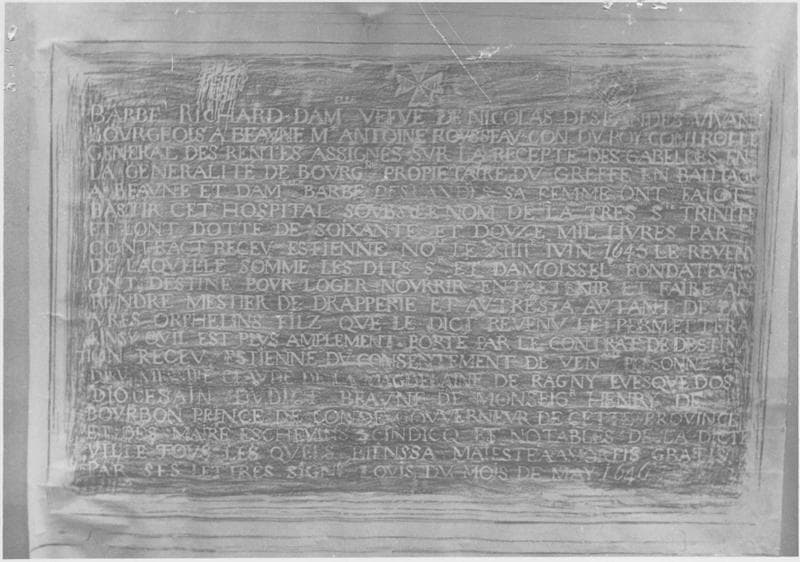 BARBE RICHARD DAM VEFVE DE NICOLAS DESLANDES VIVAN
BOVRGEOIS A BEAVNE Mᵉ ANTOINE ROVSSEAV CON DV ROY CONTROLLE
GENERAL DES RENTES ASSIGNES SVR LA RECEPTE DES GABELLES EN
LA GENERALITE DE BOVRG PROPIETAIRE DV GREFFE EN BAILIAGE
A BEAVNE ET DAM BARBE DESLANDES SA FEMME ONT FAICT
BASTIR CET HOSPITAL SOVBS LE NOM DE LA TRES Sᵗᵉ TRINITE
ET LONT DOTTE DE SOIXANTE ET DOVZE MIL LIVRES PAR
CONTRACT RECEV ESTIENNE NO LE XIIII IVIN 1645 LE REVEN
DE LAQVELLE SOMME LES DITS Sʳ ET DAMOISSEL FONDATEVRS
ONT DESTINE POVR LOGER NOVRRIR ENTRETENIR ET FAIRE AP
RENDRE MESTIER DE DRAPPERIE ET AVTRES A AVTANT DE PAV
VRES ORPHELINS FILZ QVE LE DICT REVENV LE PERMETTERA
AINSY QVIL EST PLVS AMPLEMENT PORTE PAR LE CONTRAT DE DESTIN
RECEV ESTIENNE DV CONSENTEMENT DE
MESSIRE CLAVDE DE LA MAGDELAINE DE RAGNY EVESQVE DOS
DIOCESAIN DVDICT BEAVNE DE MONSEIGʳ HENRY DE
BOVRBON PRINCE DE CONDE GOVVERNEVR DE CETTE PROVINCE
ET DES MAIRE ESCHEVINS SCINDICQ ET NOTABLES DE LA DICTE
VILLE TOVS LES QVELS BIENS SA MAIESTE A AMORTIS GRATIS
PAR SES LETTRES SIGNE LOVIS DV MOIS DE MAY 1646